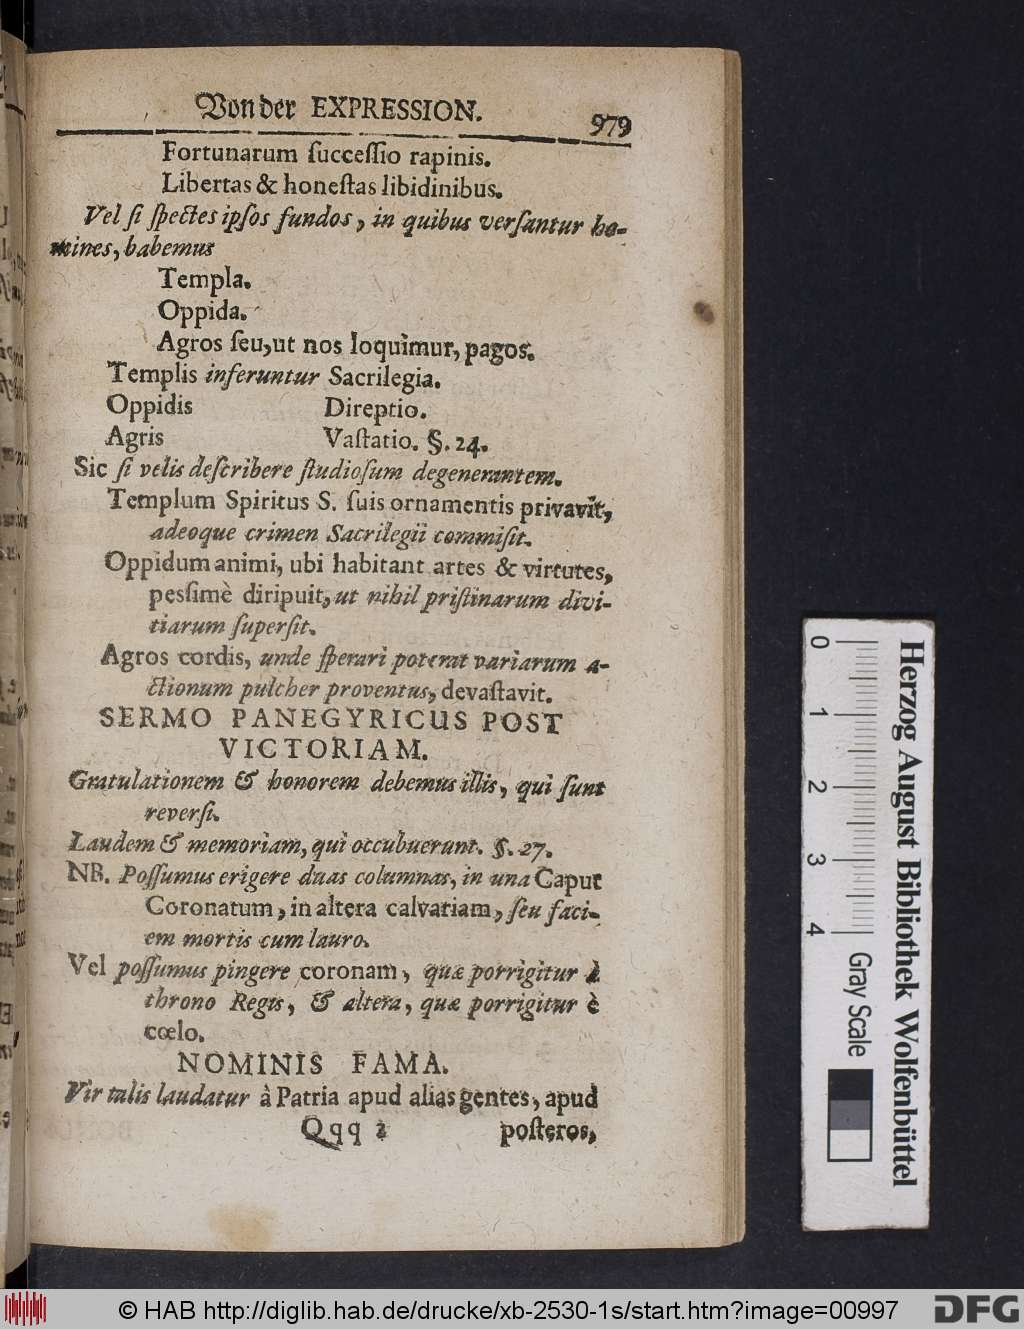 Von der EXPRESSION. 979
Fortunarum ſucceſſio rapinis.
Libertas & honeſtas libidinibus.
Vel ſi ſpectes ipſos fundos, in quibus verſantur ho-
mines, habemus
Templa.
Oppida.
Agros ſeu, ut nos loquimur, pagos.
Templis inferuntur Sacrilegia.
Oppidis Direptio.
Agris Vaſtatio. §. 24.
Sic ſi velis deſcribere ſtudioſum degenerantem.
Templum Spiritus S. ſuis ornamentis privavit,
adeoque crimen Sacrilegii commiſit.
Oppidum animi, ubi habitant artes & virtutes,
peſsimè diripuit, ut nihil priſtinarum divi-
tiarum ſuperſit.
Agros cordis, unde ſperari poterat variarum a-
ctionum pulcher proventus, devaſtavit.
SERMO PANEGYRICUS POST
VICTORIAM.
Gratulationem & honorem debemus illis, qui ſunt
reverſi.
Laudem & memoriam, qui occubuerunt. §. 27.
NB. Poſſumus erigere duas columnas, in una Caput
Coronatum, in altera calvariam, ſeu faci-
em mortis cum lauro.
Vel poſſumus pingere coronam, quæ porrigitur à
throno Regis, & altera, quæ porrigitur è
cœlo.
NOMINIS FAMA.
Vir talis laudatur à Patria apud alias gentes, apud
Qqq 2 poſteros,
0 1 2 3 4
Gray Scale
Herzog August Bibliothek Wolfenbüttel
© HAB http://diglib.hab.de/drucke/xb-2530-1s/start.htm?image=00997
DFG